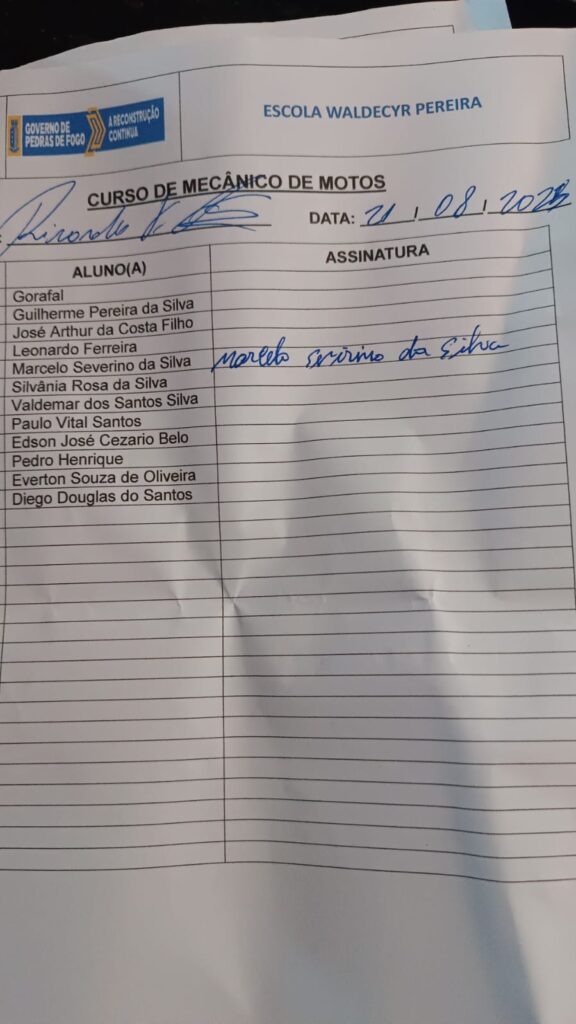 GOVERNO DE
PEDRAS DE FOGO
A RECONSTRUÇÃO
CONTINUA
ESCOLA WALDECYR PEREIRA
CURSO DE MECÂNICO DE MOTOS
DATA: 21 / 08 / 2025
ALUNO(A) ASSINATURA
Gorafal
Guilherme Pereira da Silva
José Arthur da Costa Filho
Leonardo Ferreira
Marcelo Severino da Silva Marcelo Severino da Silva
Silvânia Rosa da Silva
Valdemar dos Santos Silva
Paulo Vital Santos
Edson José Cezario Belo
Pedro Henrique
Everton Souza de Oliveira
Diego Douglas do Santos